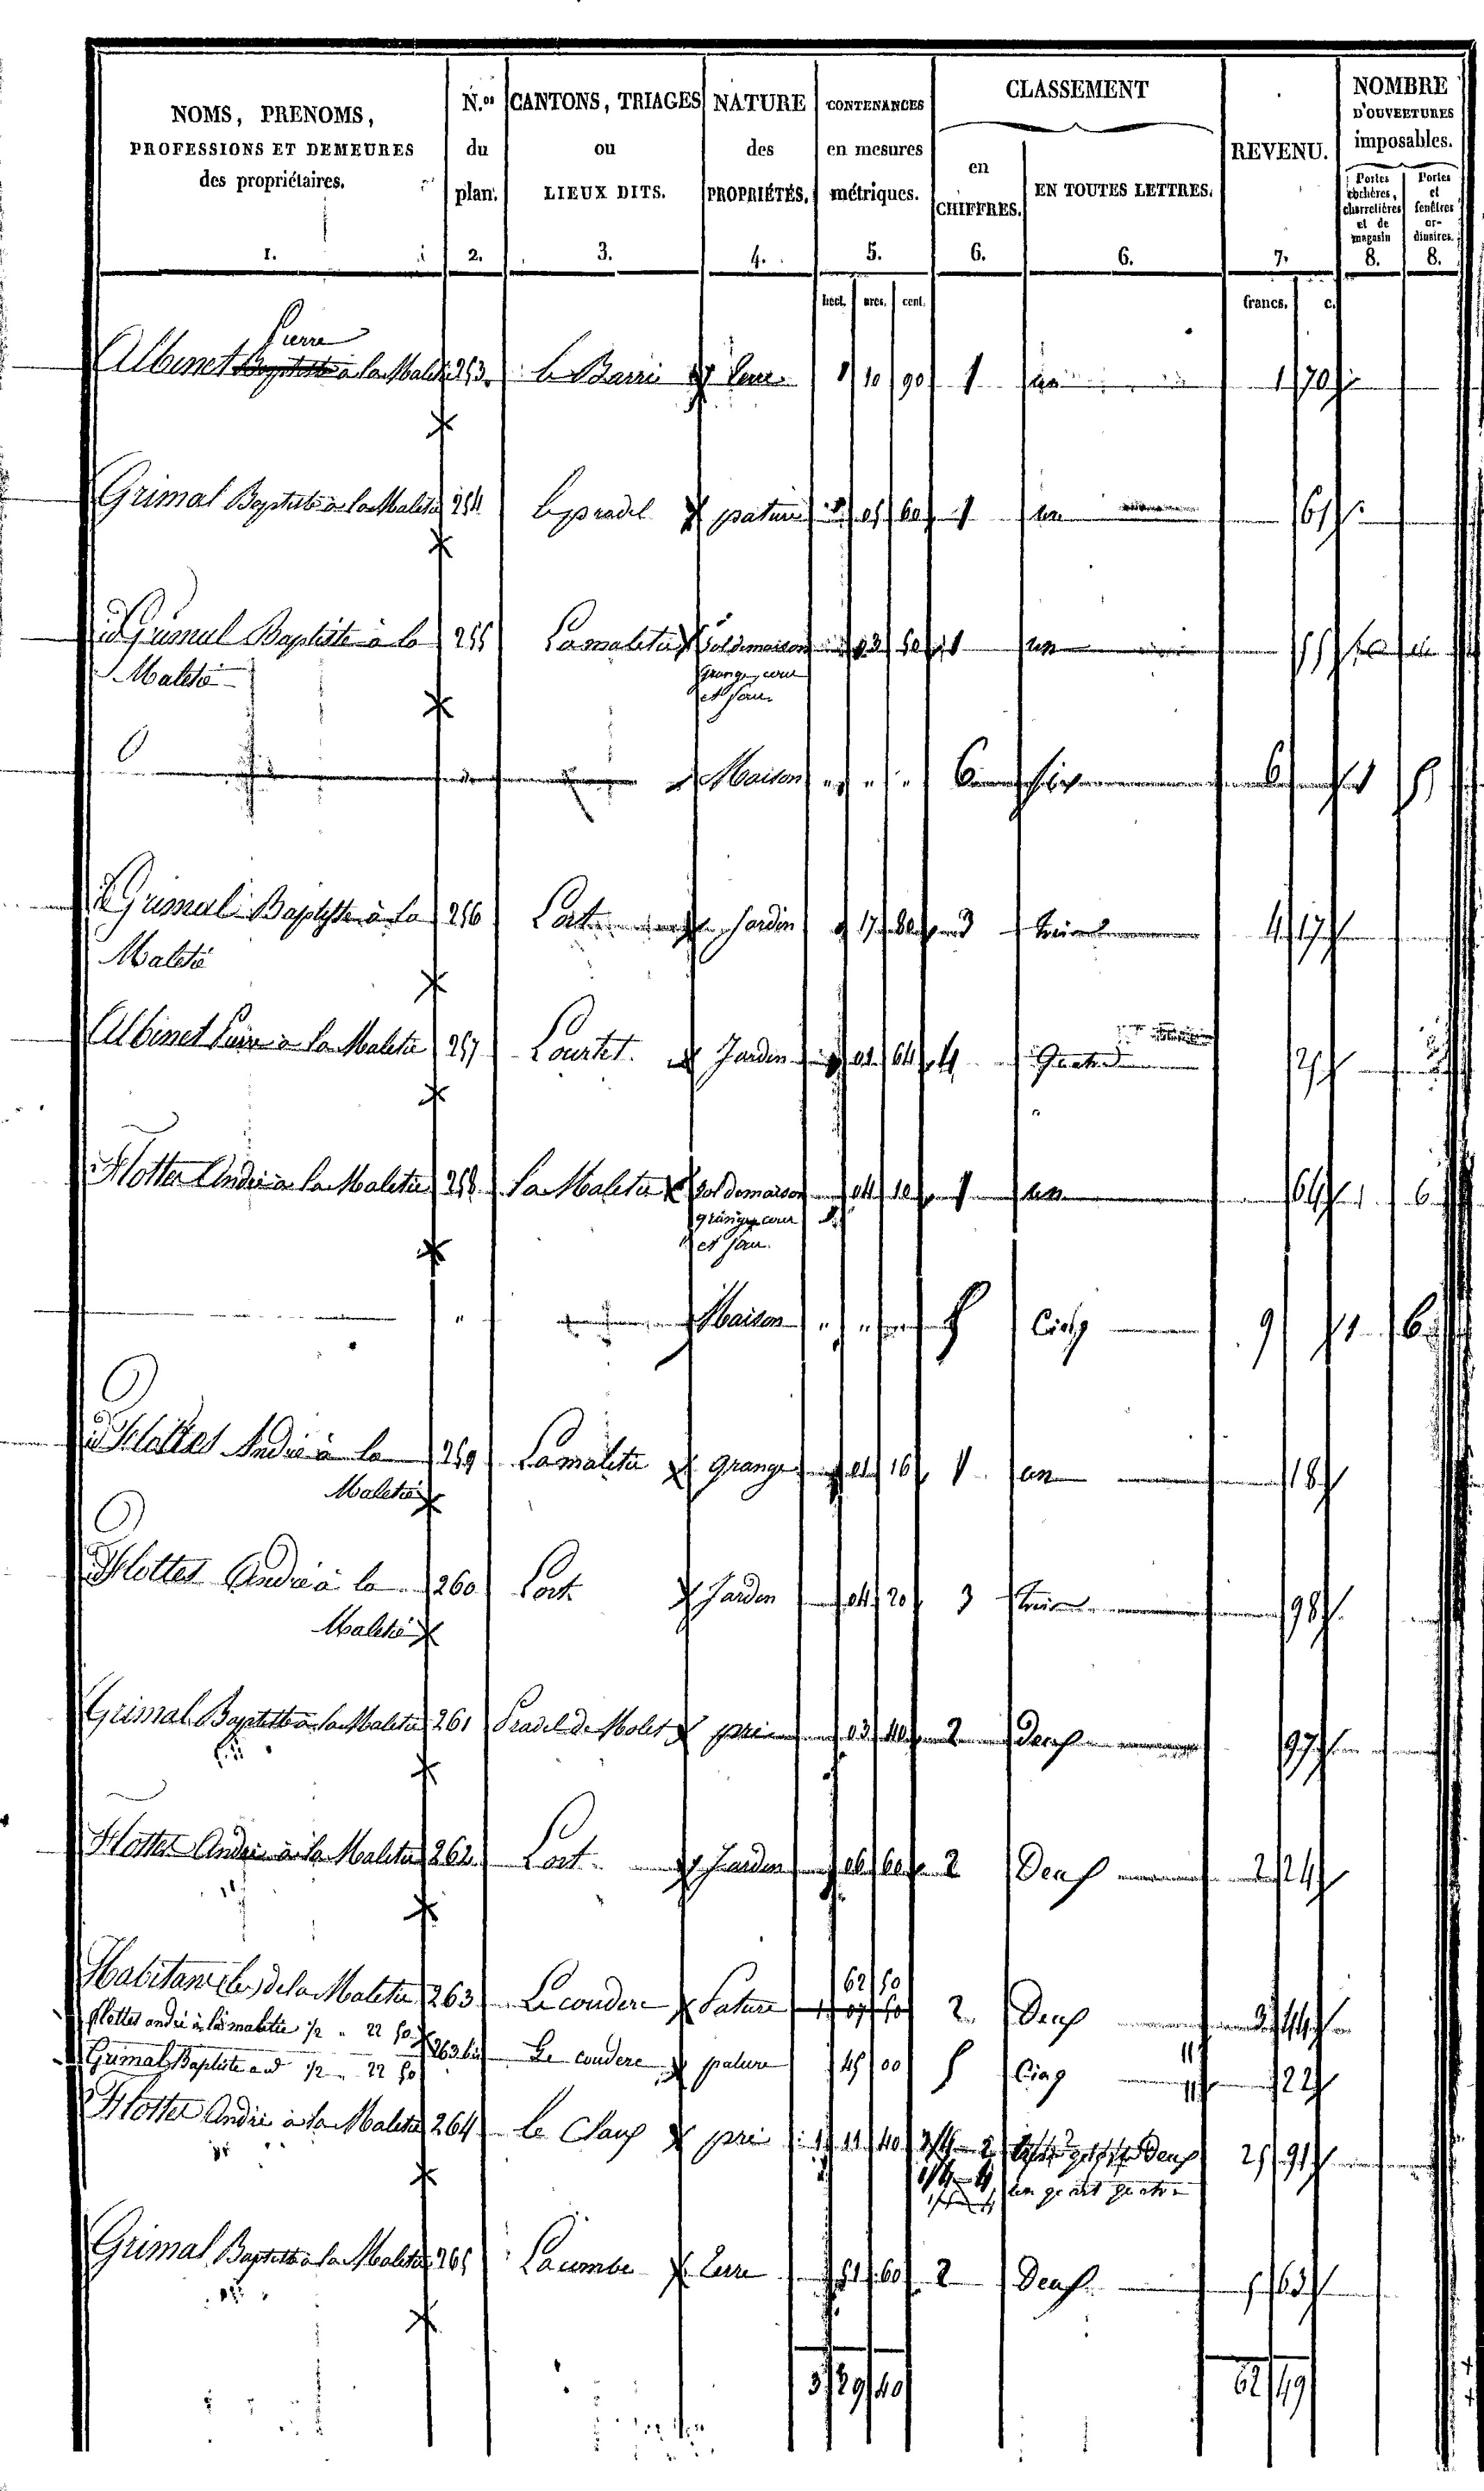 NOMS, PRENOMS, PROFESSIONS ET DEMEURES des propriétaires. 1.
N.os du plan. 2.
CANTONS, TRIAGES ou LIEUX DITS. 3.
NATURE des PROPRIÉTÉS. 4.
CONTENANCES en mesures métriques. 5.
CLASSEMENT
en CHIFFRES. 6.
EN TOUTES LETTRES. 6.
REVENU. 7.
NOMBRE D'OUVERTURES imposables.
Portes cochères, charretières et de magasin 8.
Portes et fenêtres ordinaires. 8.
hect. ares. cent. francs. c.
Pierre
Albinet Baptiste à la Maletie 253 le Barri terre 10 90 1 un 1 70
Grimal Baptiste à la Maletie 254 le pradel pature 05 60 1 un 61
Grimal Baptiste à la 255 Lamaletie Sol de maison 03 50 1 un 55
Maletie grange, cour
et four
Maison " " " 6 six 6 1 5
Grimal Baptiste à la 256 Lort Jardin 17 80 3 trois 4 17
Maletie
Albinet Pierre à la Maletie 257 Lourtet Jardin 01 64 4 Quatre 25
Flottes André à la Maletie 258 La Maletie Sol de maison 04 10 1 un 64 1 6
grange cour
et four
" Maison " " 5 Cinq 9 1 6
Flottes André à la 259 Lamaletie grange 01 16 1 un 18
Maletie
Flottes André à la 260 Lort Jardin 04 20 3 trois 98
Maletie
Grimal Baptiste à la Maletie 261 Pradel de Molet pré 03 40 2 Deux 97
Flottes André à la Maletie 262 Lort Jardin 06 60 2 Deux 2 24
62 50
Habitans (les) de la Maletie 263 Le couderc Pature 1 07 50 2 Deux 3 44
Flottes andré à la maletie 1/2 " 22 50 263 bis Le couderc pature 45 00 5 Cinq 22
Grimal Baptiste a d 1/2 " 22 50
Flottes André à la Maletie 264 le Claux pré 1 11 40 3/4 2 Deux 25 91
1/4 4 un quart quatre
Grimal Baptiste à la Maletie 265 Lacombe terre 51 60 2 Deux 5 63
3 89 40 62 49